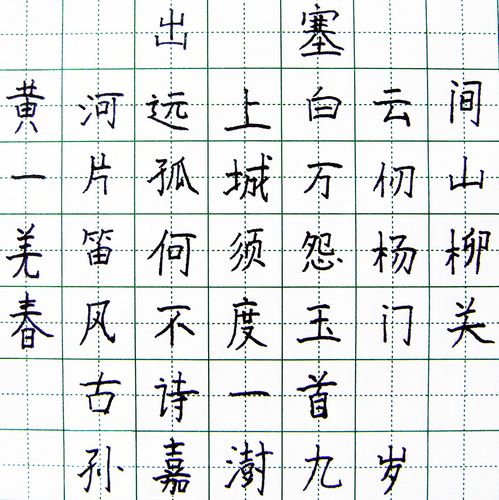 出塞
黄河远上白云间
一片孤城万仞山
羌笛何须怨杨柳
春风不度玉门关
古诗一首
孙嘉澍九岁